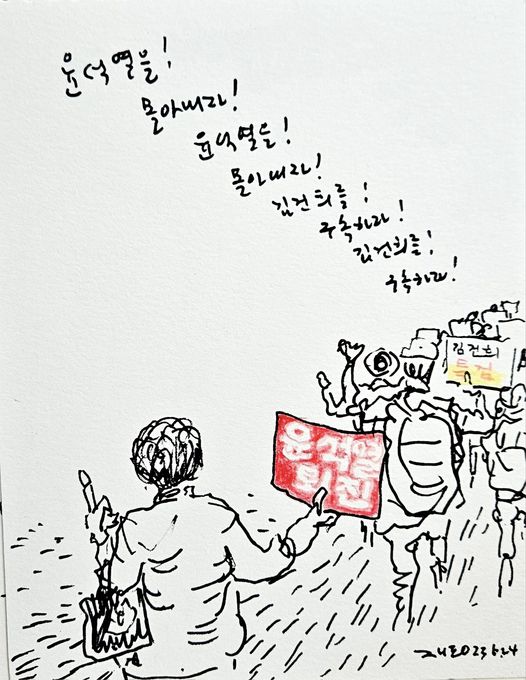 윤석열을!
몰아내라!
윤석열을!
몰아내라!
김건희를!
구속하라!
김건희를!
구속하라!
김건희
특검
윤석열
퇴진
23 6.24